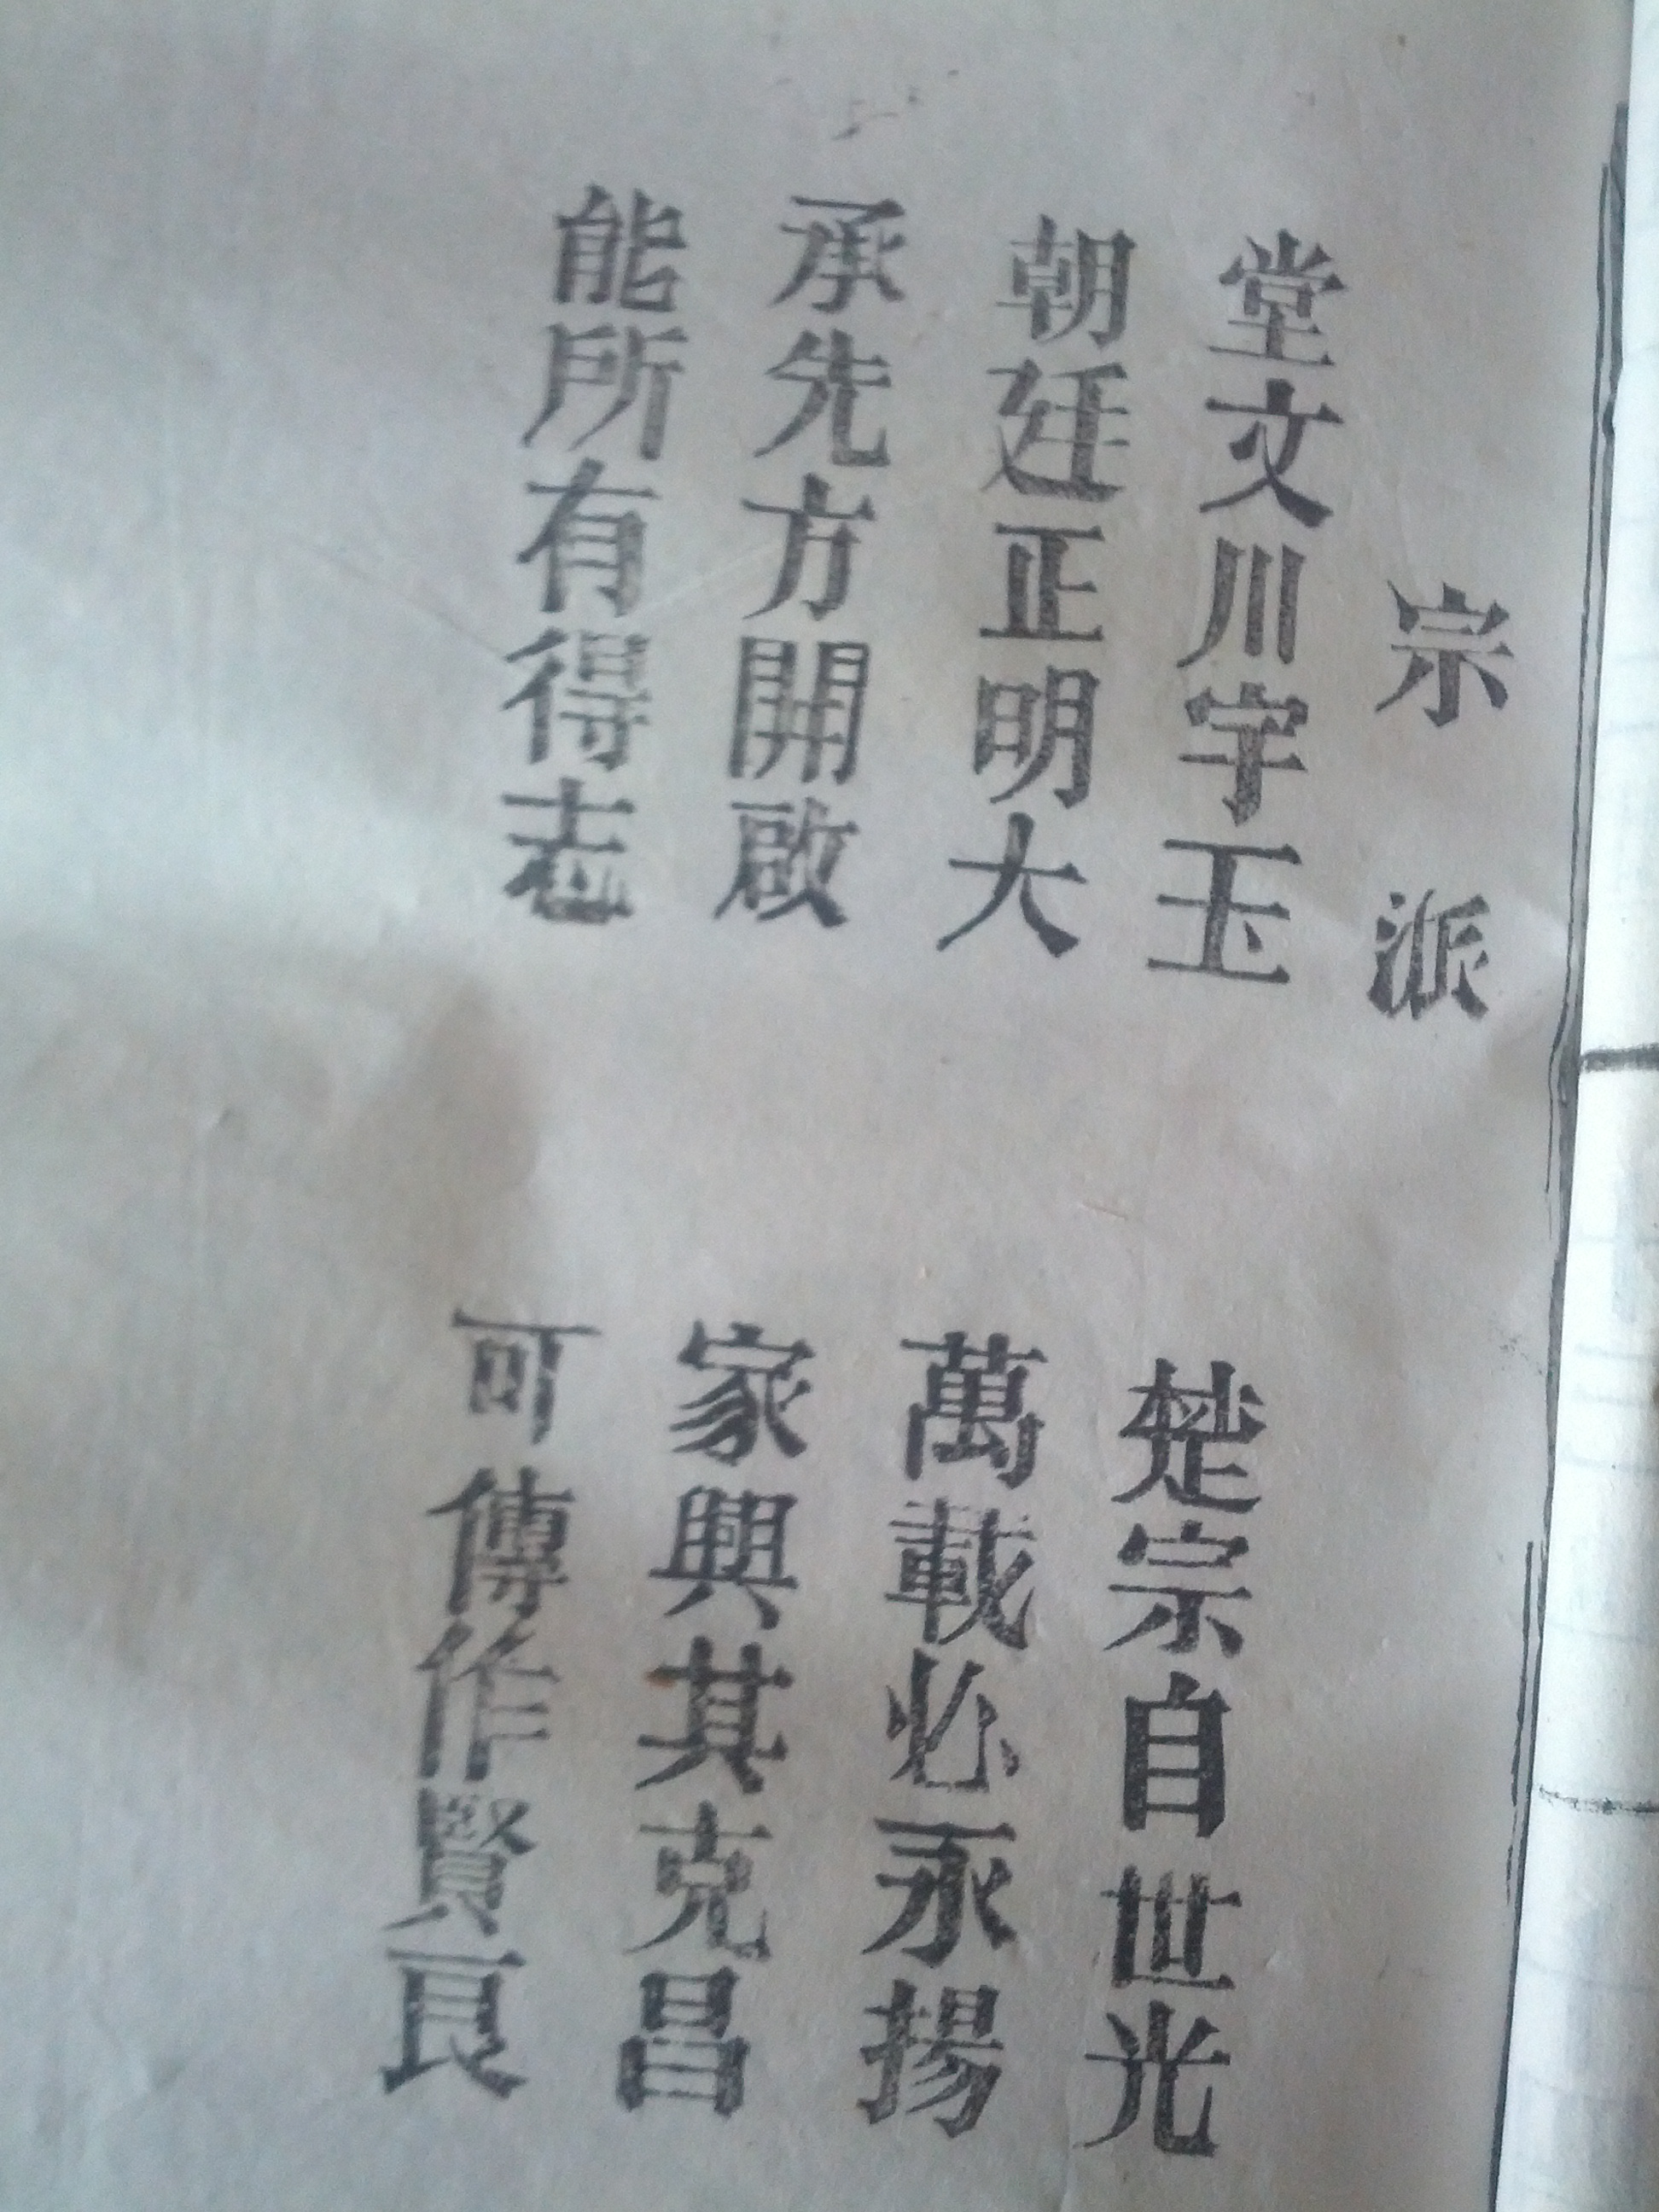 宗派
堂文川宇玉
楚宗自世光
朝廷正明大
萬載必永揚
承先方開啟
家興其克昌
能所有得志
可傳作賢良